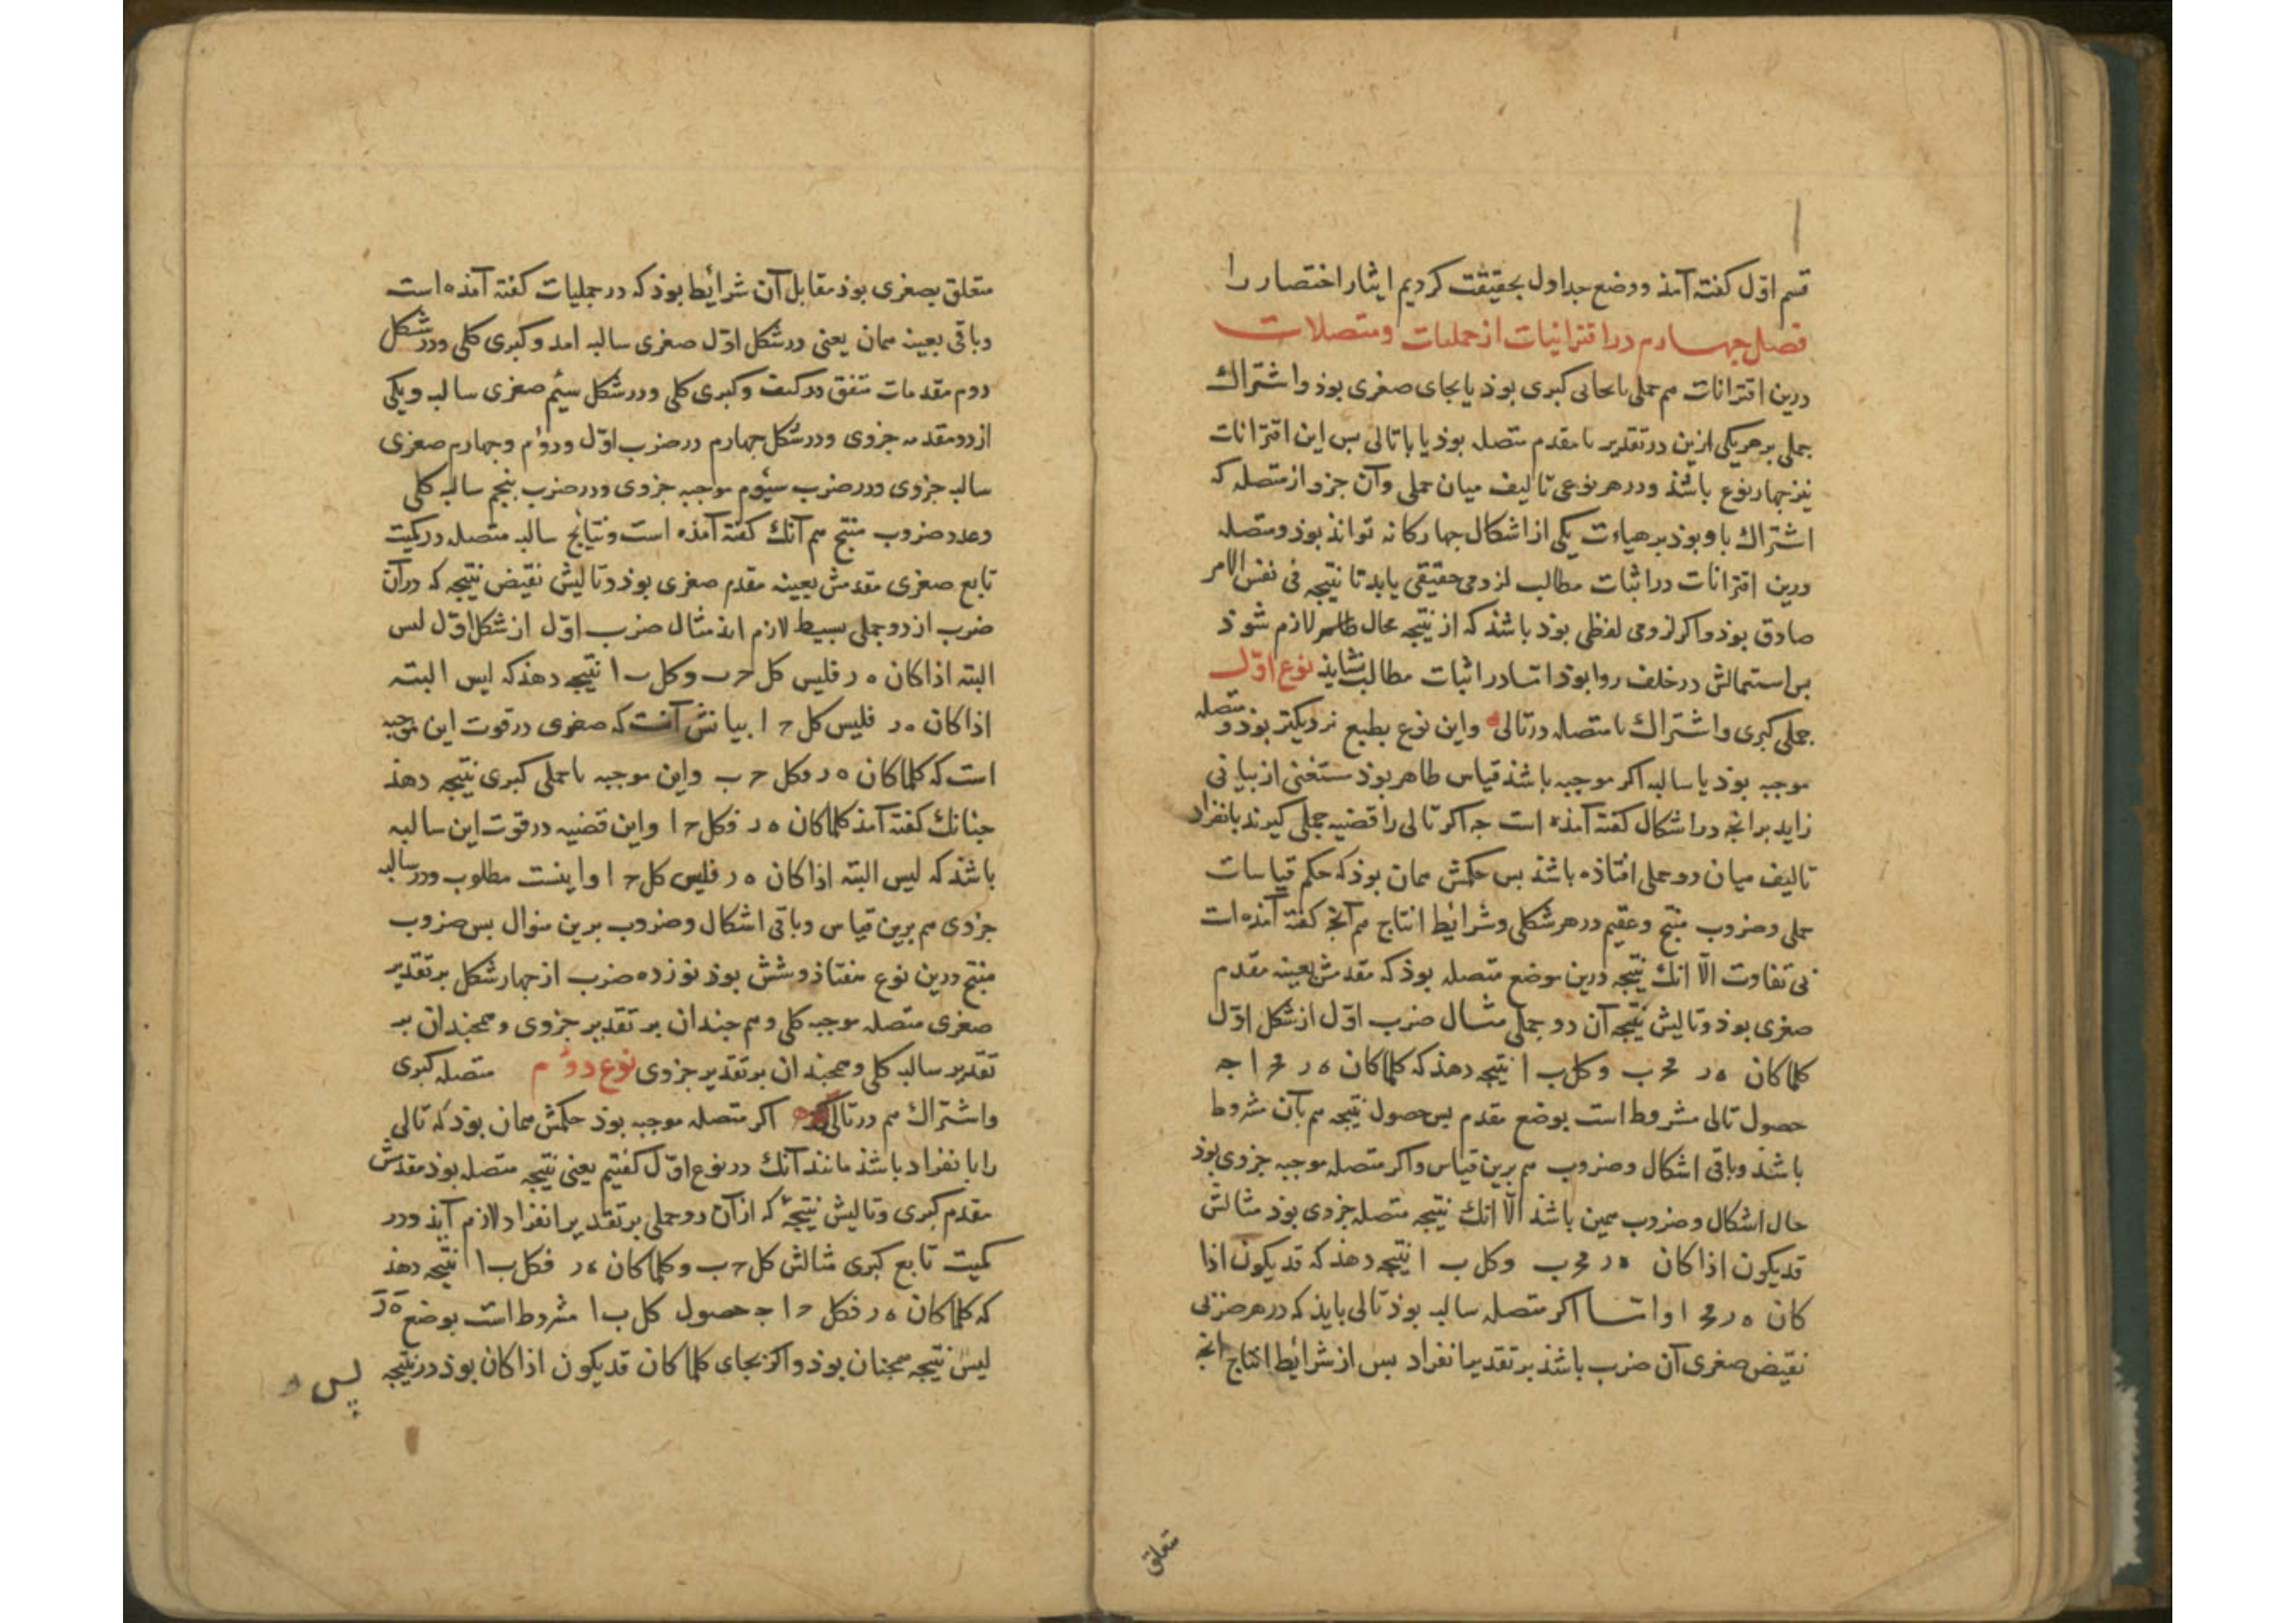 قسم اوّل کفته آمذ ووضع جداول بحقیقت کردیم ایثار اختصار را
فصل چهارم در اقترانیات از حملیات ومتصلات
درین اقترانات هم حملی بجای کبری بوذ یا بجای صغری بوذ واشتراك
حملی بر هر یکی ازین دو تقدیر با مقدم متصله بوذ یا با تالی بس این اقترانات
نیز چهار نوع باشذ ودر هر نوعی تالیف میان حملی وآن جزو از متصله که
اشتراك با او بوذ بر هیاءت یکی از اشکال چهارکانه تواند بوذ ومتصله
درین اقترانات در اثبات مطالب لزومی حقیقی بایذ تا نتیجه فی نفس الامر
صادق بوذ واکر لزومی لفظی بوذ باشذ که از نتیجه محال ظاهر لازم شوذ
بس استعمالش در خلف روا بوذ اما در اثبات مطالب نشایذ نوع اوّل
حملی کبری واشتراك با متصله در تالی واین نوع بطبع نزدیکتر بوذ ومتصله
موجبه بوذ یا سالبه اکر موجبه باشذ قیاس ظاهر بوذ مستغنی از بیانی
زاید بر انچه در اشکال کفته آمذه است چه اکر تالی را قضیه حملی کیرند بانفراد
تالیف میان دو حملی افتاذه باشذ بس حکمش همان بوذ که حکم قیاسات
حملی وضروب منتج وعقیم در هر شکلی وشرائط انتاج هم آنچ کفته آمذه است
بی تفاوت الّا انك نتیجه درین موضع متصله بوذ که مقدمش بعینه مقدم
صغری بوذ وتالیش نتیجه آن دو حملی مثال ضرب اوّل از شکل اوّل
کلما کان ه ر فح ب وکل ب ا نتیجه دهذ که کلما کان ه ر فح ا چه
حصول تالی مشروط است بوضع مقدم بس حصول نتیجه هم بآن شروط
باشذ وباقی اشکال وضروب هم برین قیاس واکر متصله موجبه جزوی بوذ
حال اشکال وضروب همین باشذ الّا انك نتیجه متصله جزوی بوذ مثالش
قد یکون اذا کان ه ر فح ب وکل ب ا نتیجه دهذ که قد یکون اذا
کان ه ر فح ا واما اکر متصله سالبه بوذ تالی بایذ که در هر ضربی
نقیض صغری آن ضرب باشذ بر تقدیر انفراد بس از شرائط انتاج انچ
متعلق
متعلق بصغری بوذ مقابل آن شرائط بوذ که در حملیات کفته آمذه است
وباقی بعینه همان یعنی در شکل اوّل صغری سالبه امد وکبری کلی ودر شکل
دوم مقدمات متفق در کیف وکبری کلی ودر شکل سیُم صغری سالبه ویکی
از دو مقدمه جزوی ودر شکل چهارم در ضرب اوّل ودوُم وچهارم صغری
سالبه جزوی ودر ضرب سیوُم موجبه جزوی ودر ضرب پنجم سالبه کلی
وعدد ضروب منتج هم آنك کفته آمذه است ونتایج سالبه متصله در کمیت
تابع صغری مقدمش بعینه مقدم صغری بوذ وتالیش نقیض نتیجه که در آن
ضرب از دو حملی بسیط لازم اید مثال ضرب اوّل از شکل اوّل لیس
البته اذا کان ه ر فلیس کل ح ب وکل ب ا نتیجه دهذ که لیس البته
اذا کان ه ر فلیس کل ح ا بیانش آنست که صغری در قوت این موجبه
است که کلما کان ه ر فکل ح ب واین موجبه با حملی کبری نتیجه دهذ
چنانك کفته آمذ کلما کان ه ر فکل ح ا واین قضیه در قوت این سالبه
باشذ که لیس البته اذا کان ه ر فلیس کل ح ا واینست مطلوب ودر سالبه
جزوی هم برین قیاس وباقی اشکال وضروب برین منوال بس ضروب
منتج درین نوع هفتاذ وشش بوذ نوزده ضرب از چهار شکل بر تقدیر
صغری متصله موجبه کلی وهم چندان بر تقدیر جزوی وهمچندان بر
تقدیر سالبه کلی وهمچندان بر تقدیر جزوی نوع دوُم متصله کبری
واشتراك هم در تالی اکر متصله موجبه بوذ حکمش همان بوذ که تالی
را بانفراد باشذ مانند آنك در نوع اوّل کفتیم یعنی نتیجه متصله بوذ مقدمش
مقدم کبری وتالیش نتیجهٔ که از آن دو حملی بر تقدیر انفراد لازم آیذ ودر
کمیت تابع کبری مثالش کل ح ب وکلما کان ه ر فکل ب ا نتیجه دهذ
که کلما کان ه ر فکل ح ا چه حصول کل ب ا مشروط است بوضع ه ر
لیس نتیجه همچنان بوذ واکر بجای کلما کان قد یکون اذا کان بوذ در نتیجه
پس